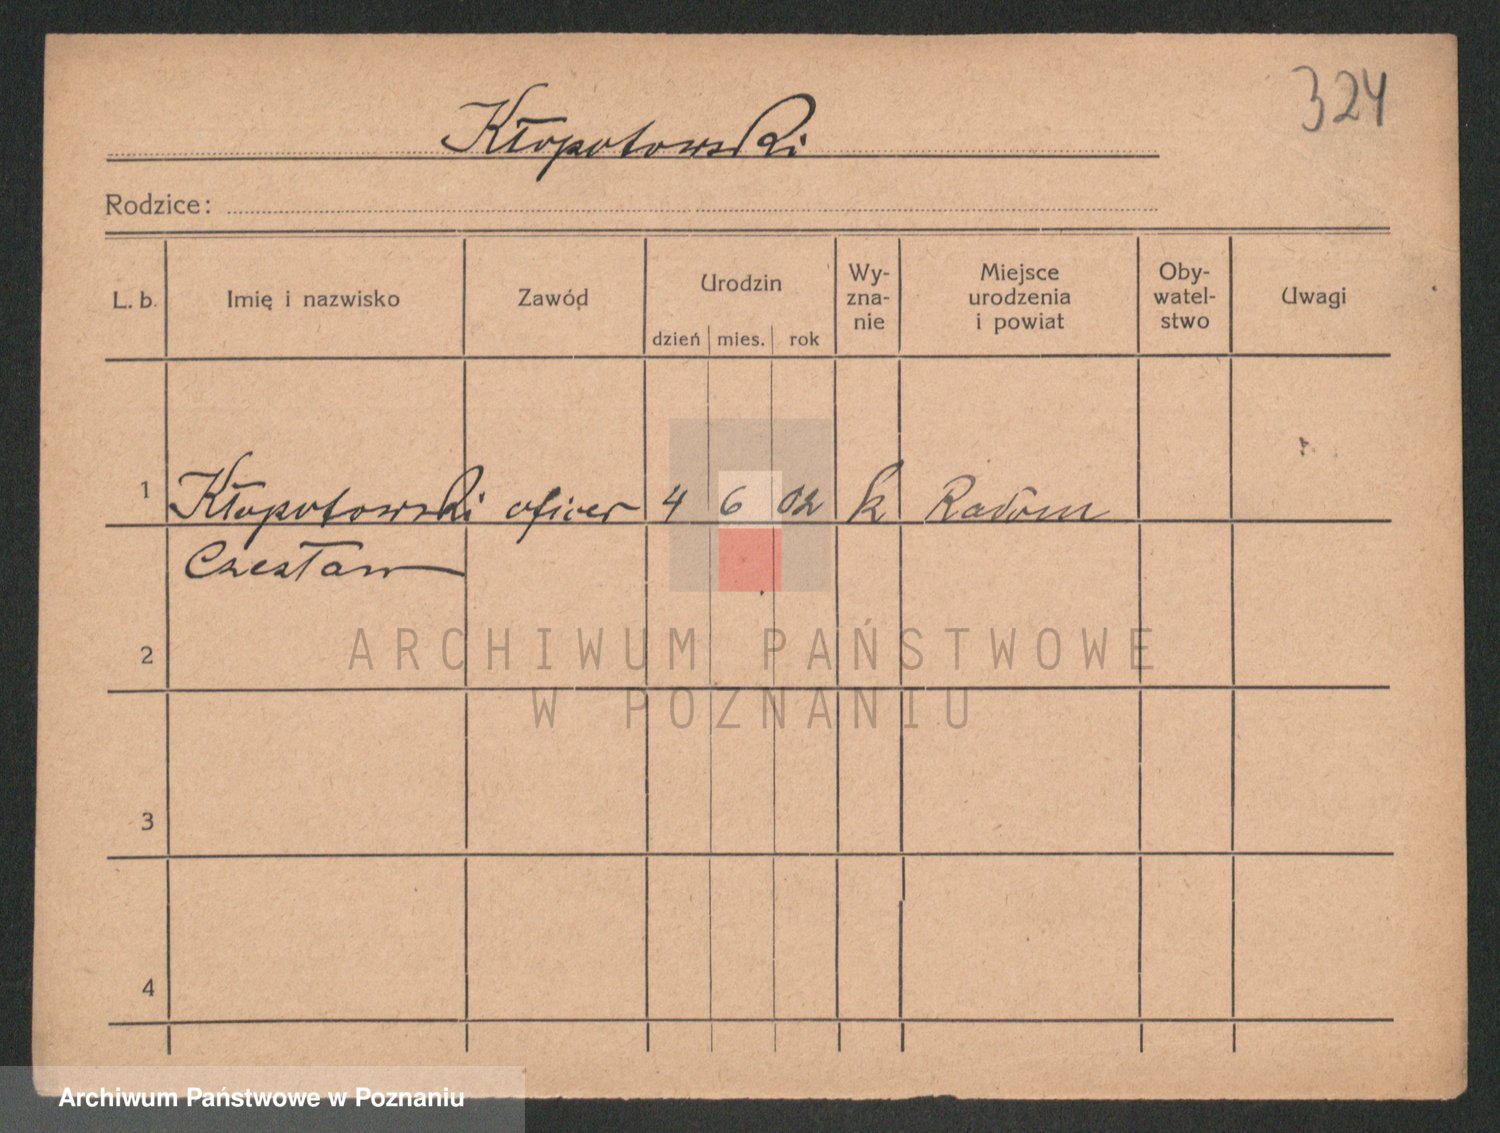 324
Kłopotowski
Rodzice:
L. b. Imię i nazwisko Zawód Urodzin Wy-zna-nie Miejsce urodzenia i powiat Oby-watel-stwo Uwagi
dzień mies. rok
1 Kłopotowski oficer 4 6 02 k Radom
Czesław
2
ARCHIWUM PAŃSTWOWE
W POZNANIU
3
4
Archiwum Państwowe w Poznaniu